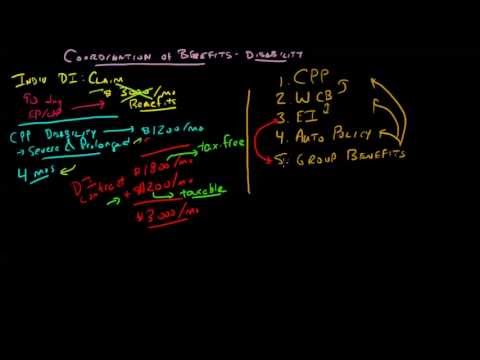 Coordination of Benefits - Disability
Indiv DI: Claim
$3000/mo
Benefits
90 day
CPP Disability → $1200/mo
→ Severe & Prolonged
4 mos
DI
Contract
$1800/mo
tax-free
+ $1200/mo
taxable
$3000/mo
1. CPP
2. WCB
3. EI
4. Auto Policy
5. Group Benefits